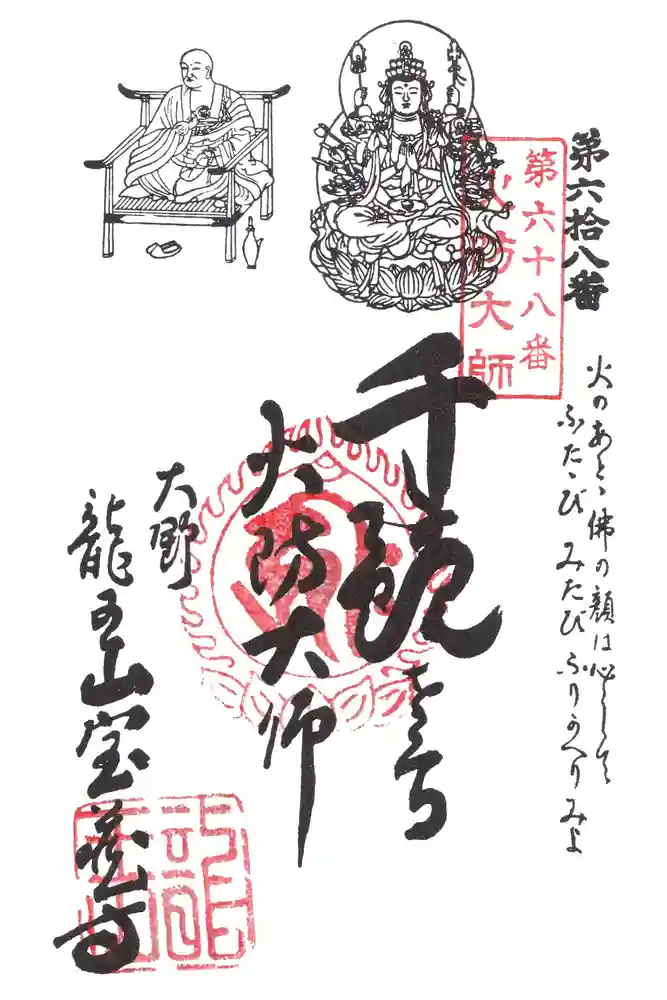 第六拾八番
火のあとゝ佛の顔は心して
ふたゝびみたびふりかへりみよ
第六十八番
火防大師
千観世音
火防大師
大野
龍王山宝蔵寺